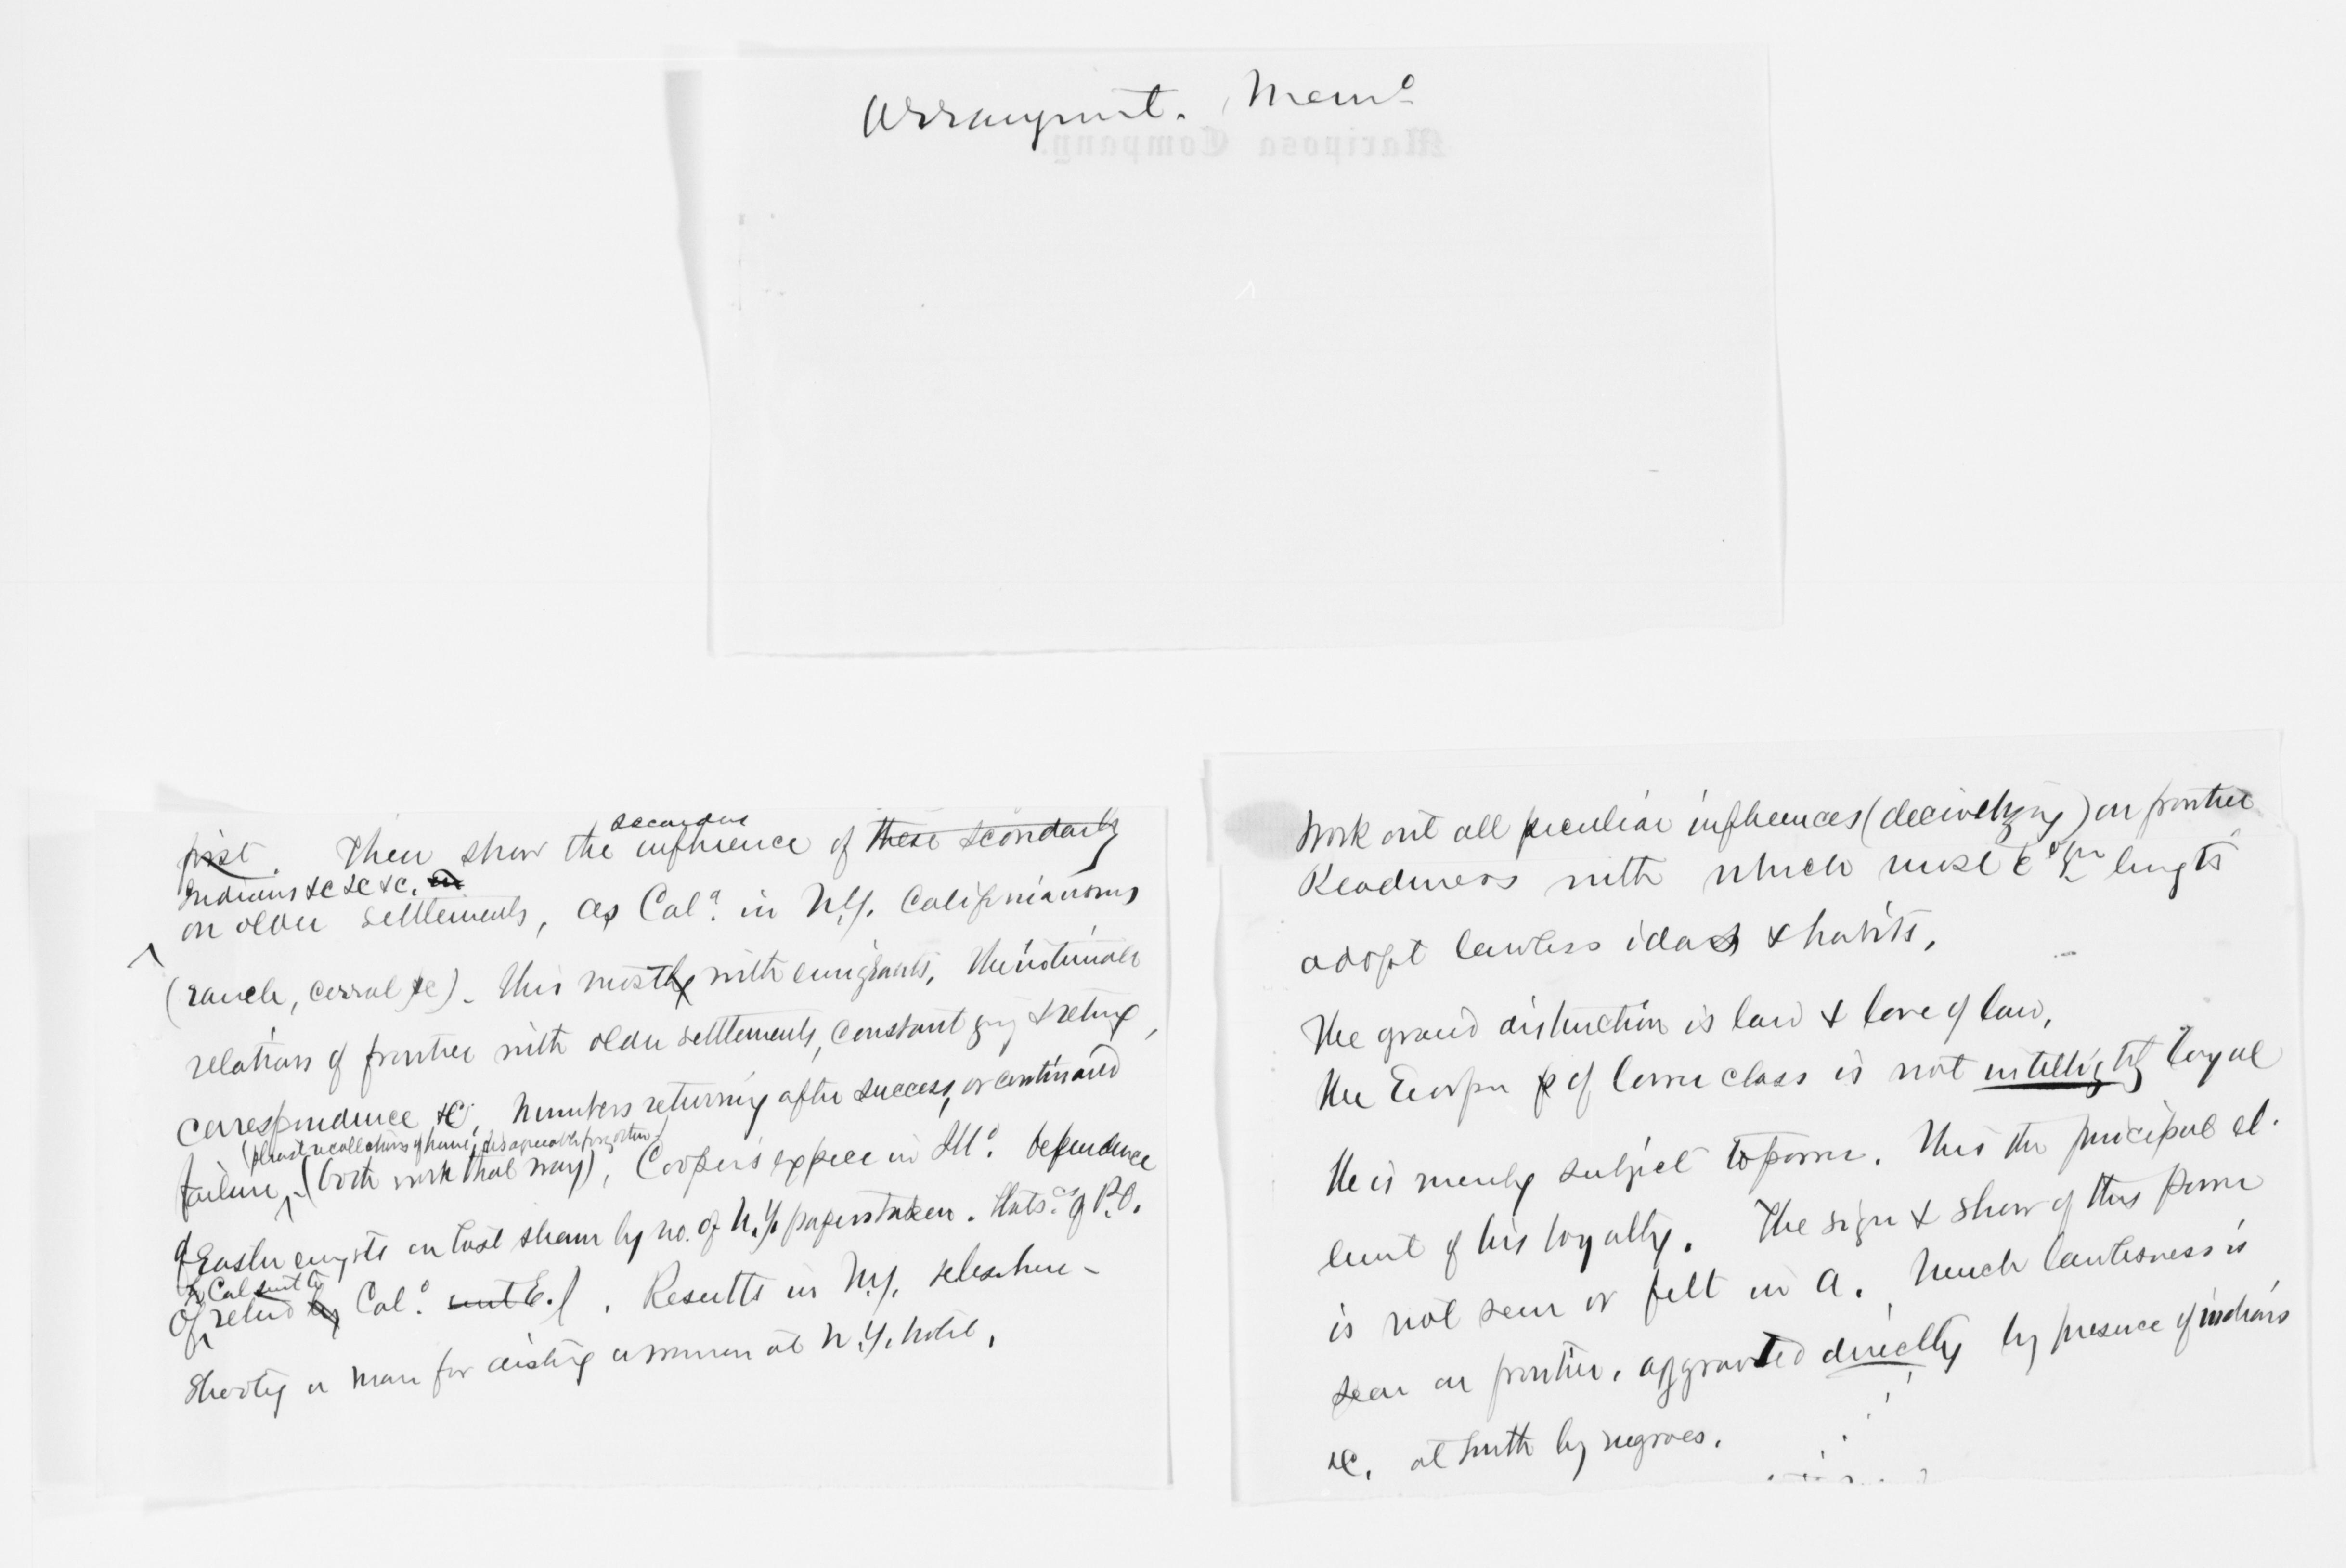 Arrangement. Memo
Mariposa Company.
first. Then show the secondary influence of these secondarily
Indians &c &c &c.
on older settlements, as Cala. in N.Y. Californianisms
(ranch, corral &c). This mostly with emigrants. The intimate
relations of frontier with older settlements, constant going & returng,
correspondence &c. Numbers returning after success, or continued
(pleasant recollections of home, disagreeable forgotten)
failure, (both work that way), Cooper's expce in Ill. dependence
of Easter emgts on last steam by no. of N.Y. papers taken. Stats. of P.O.
Cal sent to
of Cala. sent E.). Results in N.Y. elsewhere
Shooting a man for a woman at N.Y. hotel.
Work out all peculiar influences (decivilizing) on frontier
Readiness with which most emgts
adopt lawless ideas & habits.
The grand distinction is law & love of law.
The Europn of lower class is not intelligtly loyal
He is merely subject to power. This the principal el-
emt of his loyalty. The sign & show of this power
is not seen or felt in A. Hence lawlessness is
seen on frontier, aggravated directly by presence of indians
&c. at South by negroes.